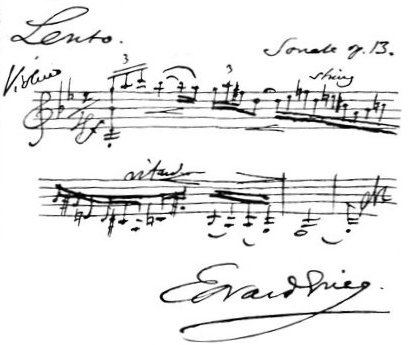 Lento.
Sonate op. 13.
Violino
3
3
string
ritard
Edvard Grieg.